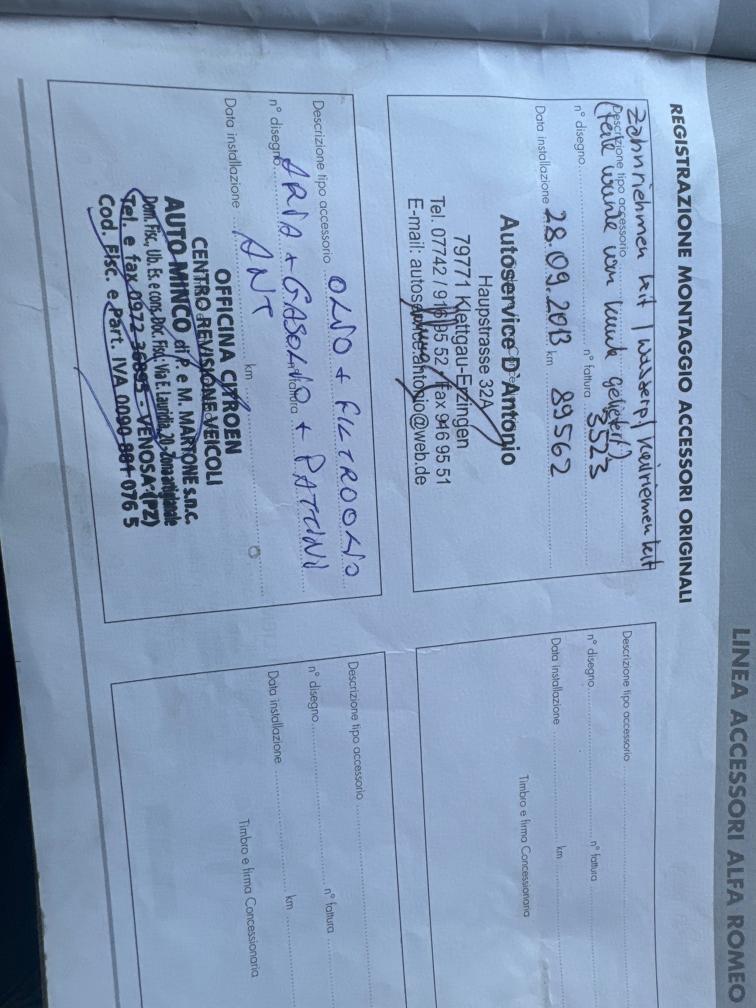 LINEA ACCESSORI ALFA ROMEO
REGISTRAZIONE MONTAGGIO ACCESSORI ORIGINALI
Zahnriehmen kit / Wasserp / Keilriemen kit
Descrizione tipo accessorio
(Teile wurde von Kunde geliefert)
n° disegno n° fattura 3523
Data installazione 28.09.2013 km 89562
Autoservice D`Antonio
Haupstrasse 32A
79771 Klettgau-Erzingen
Tel. 07742 / 916 95 52 / Fax 916 95 51
E-mail: autoservice.antonio@web.de
Descrizione tipo accessorio OLIO + FILTRO OLIO
n° disegno ARIA + GASOLIO + PATTINI
fattura
ANT
Data installazione km
OFFICINA CITROEN
CENTRO REVISIONE VEICOLI
AUTO MINCO di P. e M. MARTONE s.n.c.
Dom. Fisc., Ub. Es. e cons. Doc. Fisc. Via E. Lauridia, 20 - Zona artigianale
Tel. e fax 0972 - VENOSA (PZ)
Cod. Fisc. e Part. IVA 076 5
Descrizione tipo accessorio
n° disegno n° fattura
Data installazione km
Timbro e firma Concessionaria
Descrizione tipo accessorio
n° disegno n° fattura
Data installazione km
Timbro e firma Concessionaria